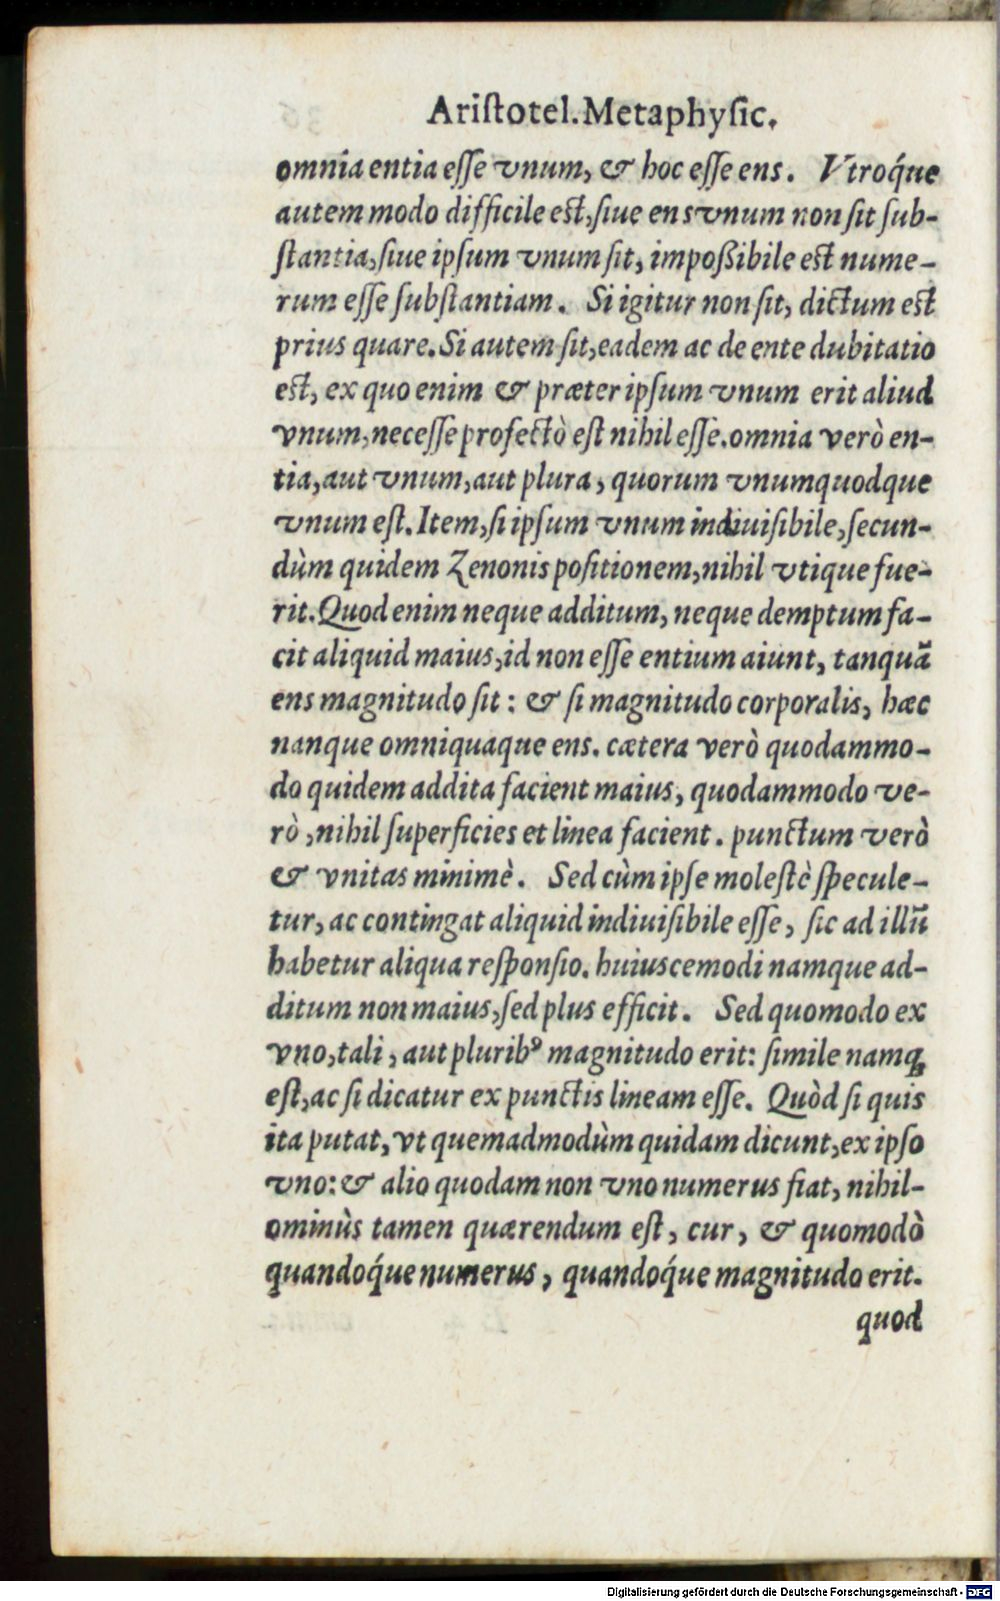 Ariſtotel. Metaphyſic.
omnia entia eſſe vnum, & hoc eſſe ens. Vtroq́ue
autem modo difficile eſt, ſiue ens vnum non ſit ſub-
ſtantia, ſiue ipſum vnum ſit, impoßibile eſt nume-
rum eſſe ſubſtantiam. Si igitur non ſit, dictum eſt
prius quare. Si autem ſit, eadem ac de ente dubitatio
eſt, ex quo enim & præter ipſum vnum erit aliud
vnum, neceſſe profectò eſt nihil eſſe. omnia verò en-
tia, aut vnum, aut plura, quorum vnumquodque
vnum eſt. Item, ſi ipſum vnum indiuiſibile, ſecun-
dùm quidem Zenonis poſitionem, nihil vtique fue-
rit. Quod enim neque additum, neque demptum fa-
cit aliquid maius, id non eſſe entium aiunt, tanquã
ens magnitudo ſit: & ſi magnitudo corporalis, hæc
nanque omniquaque ens. cætera verò quodammo-
do quidem addita facient maius, quodammodo ve-
rò, nihil ſuperficies et linea facient. punctum verò
& vnitas minimè. Sed cùm ipſe moleſtè ſpecule-
tur, ac contingat aliquid indiuiſibile eſſe, ſic ad illũ
habetur aliqua reſponſio. huiuscemodi namque ad-
ditum non maius, ſed plus efficit. Sed quomodo ex
vno, tali, aut pluribꝰ magnitudo erit: ſimile namꝗ
eſt, ac ſi dicatur ex punctis lineam eſſe. Quòd ſi quis
ita putat, vt quemadmodùm quidam dicunt, ex ipſo
vno: & alio quodam non vno numerus fiat, nihil-
ominùs tamen quærendum eſt, cur, & quomodò
quandoq́ue numerus, quandoq́ue magnitudo erit.
quod
Digitalisierung gefördert durch die Deutsche Forschungsgemeinschaft - DFG